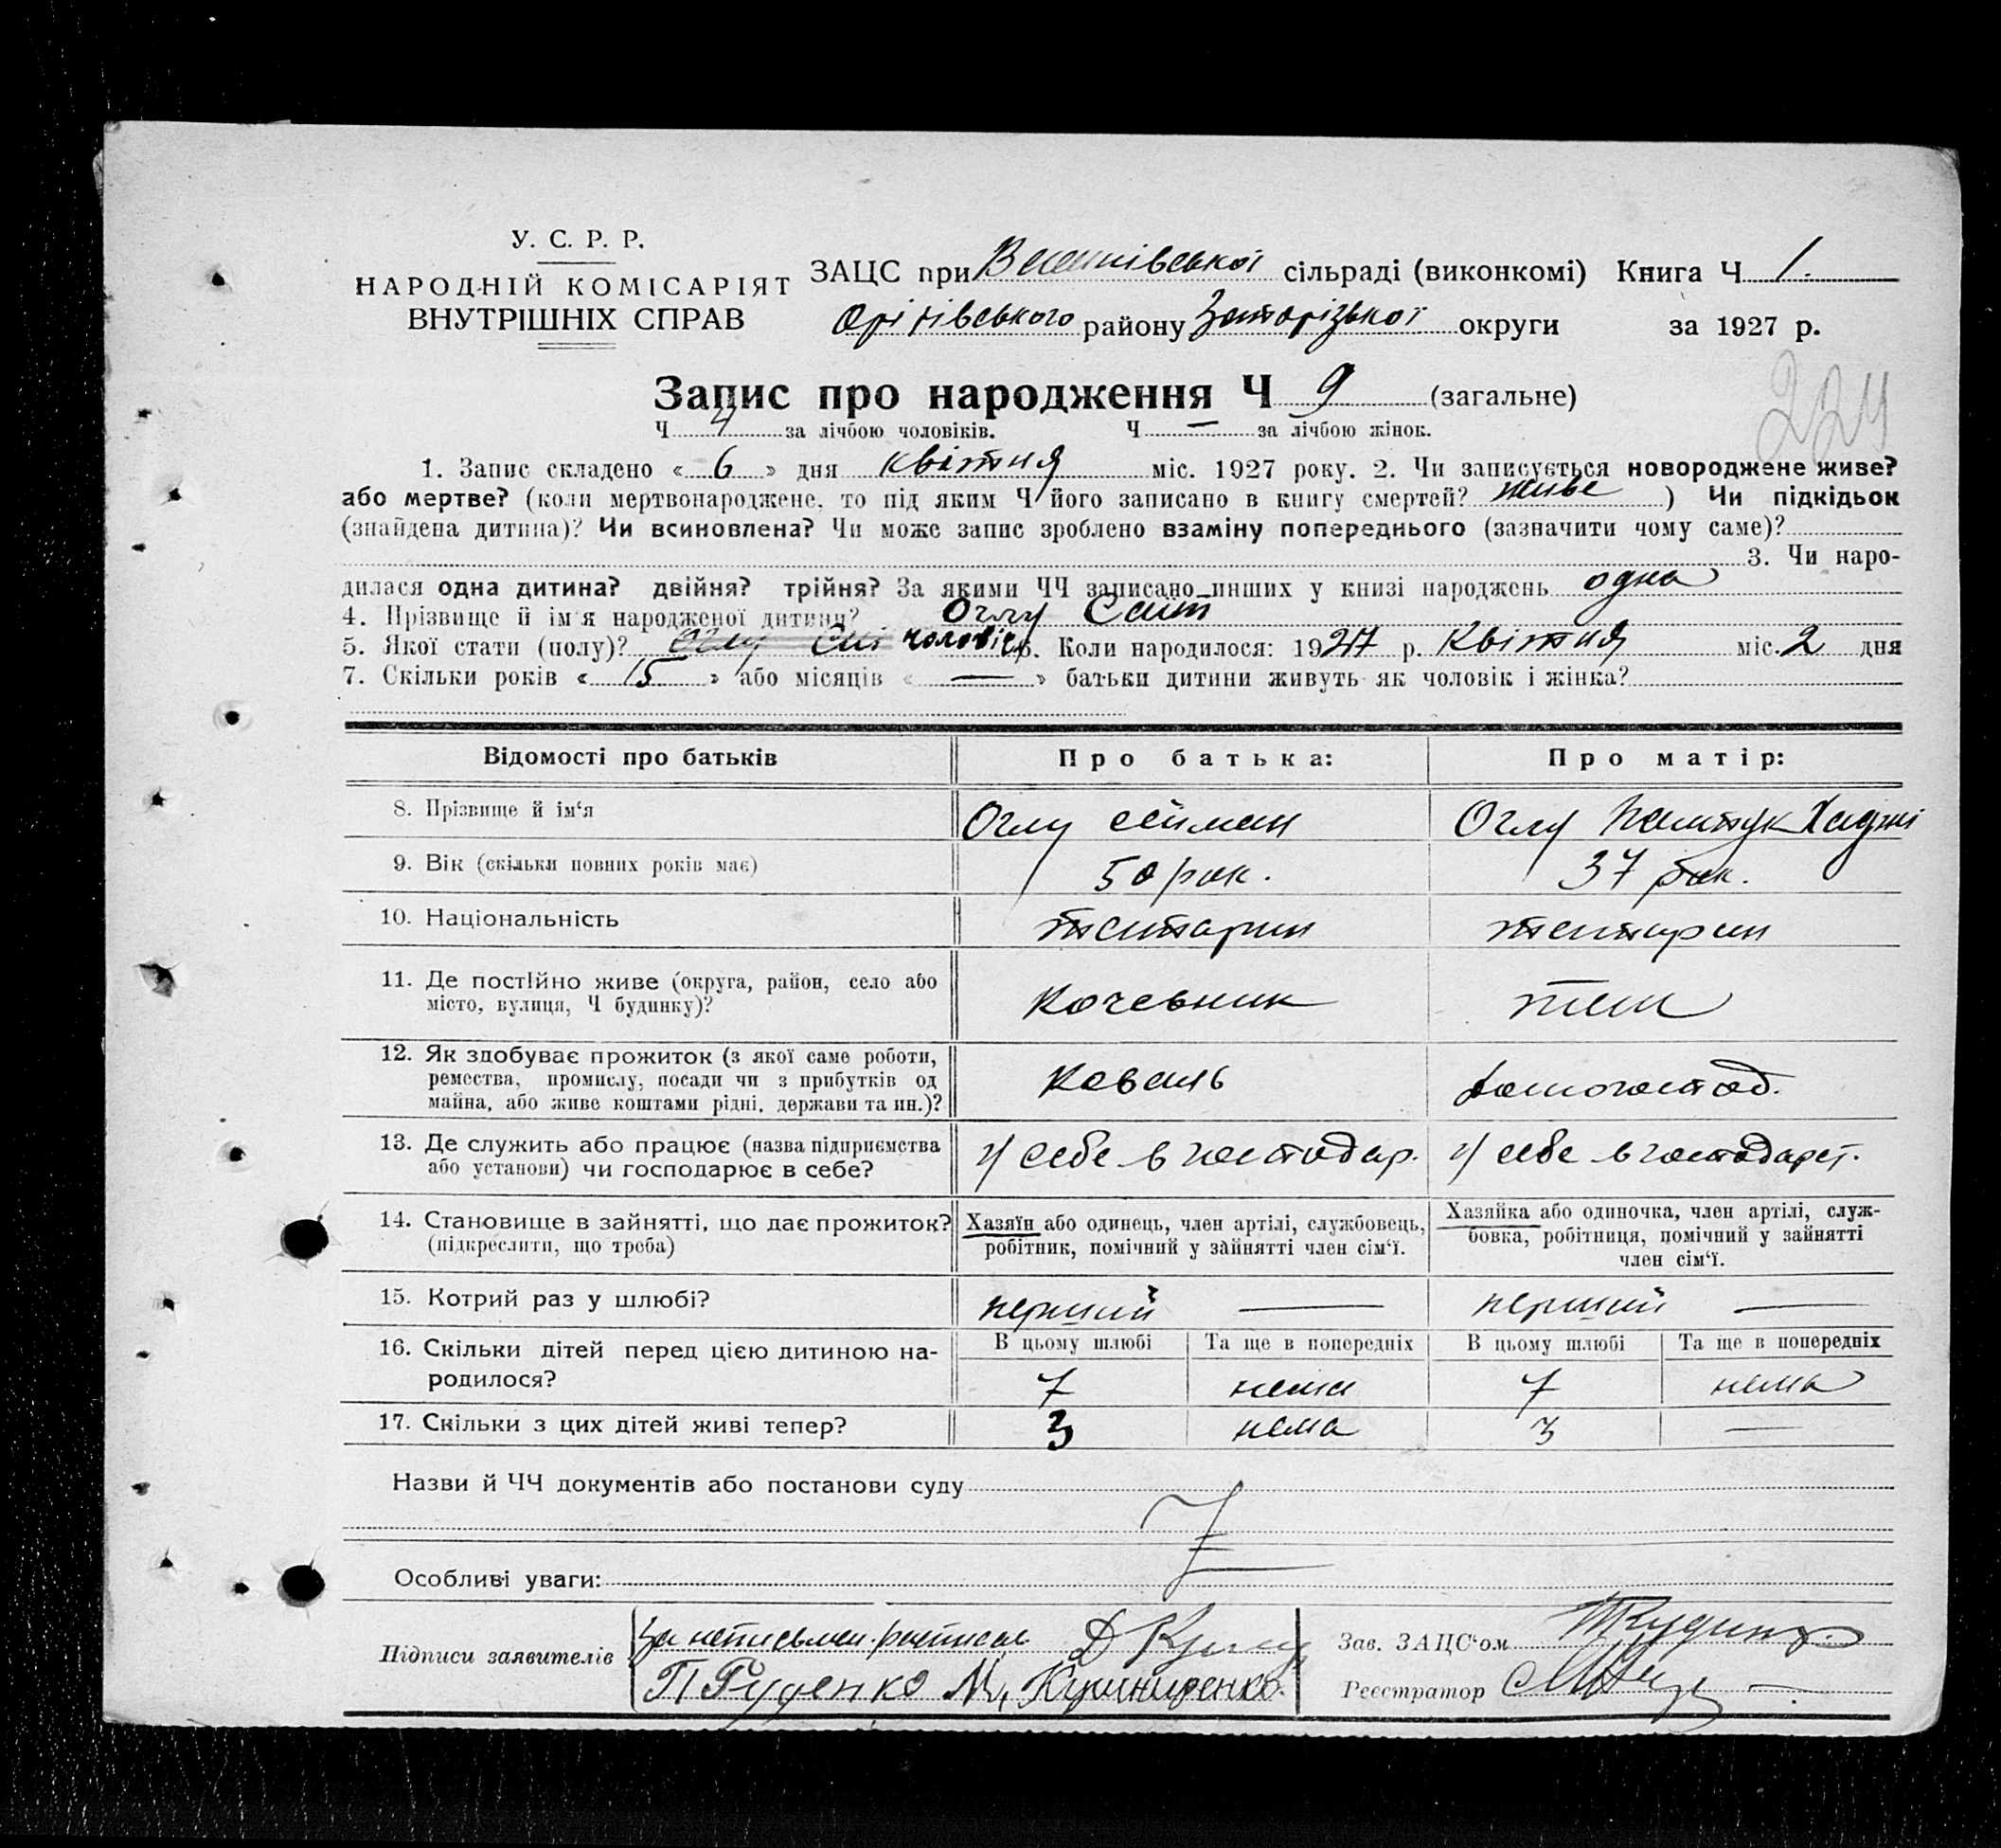 У. С. Р. Р.
НАРОДНІЙ КОМІСАРІЯТ
ВНУТРІШНІХ СПРАВ
ЗАЦС при сільраді (виконкомі) Книга Ч 1.
Оріхівського району Запорізької округи за 1927 р.
224
Запис про народження Ч 9 (загальне)
Ч 4 за лічбою чоловіків. Ч — за лічбою жінок.
1. Запис складено « 6 » дня квітня міс. 1927 року. 2. Чи записується новороджене живе?
або мертве? (коли мертвонароджене, то під яким Ч його записано в книгу смертей? живе ) Чи підкідьок
(знайдена дитина)? Чи всиновлена? Чи може запис зроблено взаміну попереднього (зазначити чому саме)?
3. Чи наро-
дилася одна дитина? двійня? трійня? За якими ЧЧ записано инших у книзі народжень одна
4. Прізвище й ім'я народженої дитини? Оглу Саит
5. Якої стати (полу)? чоловіч. 6. Коли народилося: 1927 р. Квітня міс. 2 дня
7. Скільки років « 15 » або місяців « — » батьки дитини живуть як чоловік і жінка?
Відомості про батьків Про батька: Про матір:
8. Прізвище й ім'я Оглу Сейман Оглу Хаджі
9. Вік (скільки повних років має) 50 рок. 37 рок.
10. Національність татарин татарин
11. Де постійно живе (округа, район, село або
місто, вулиця, Ч будинку)? Кочевник теж
12. Як здобуває прожиток (з якої саме роботи,
ремества, промислу, посади чи з прибутків од
майна, або живе коштами рідні, держави та ин.)? Коваль домогоспод.
13. Де служить або працює (назва підприємства
або установи) чи господарює в себе? У себе в господар. У себе в господарст.
14. Становище в зайнятті, що дає прожиток?
(підкреслити, що треба)
Хазяїн або одинець, член артілі, службовець,
робітник, помічний у зайнятті член сім'ї.
Хазяйка або одиночка, член артілі, служ-
бовка, робітниця, помічний у зайнятті
член сім'ї.
15. Котрий раз у шлюбі? перший — перший —
16. Скільки дітей перед цією дитиною на-
родилося?
В цьому шлюбі Та ще в попередніх В цьому шлюбі Та ще в попередніх
7 нема 7 нема
17. Скільки з цих дітей живі тепер? 3 нема 3 —
Назви й ЧЧ документів або постанови суду
Особливі уваги:
Підписи заявителів
За неписьмен. росписал
П Руденко М. Кушниренко.
Зав. ЗАЦС'ом
Реєстратор